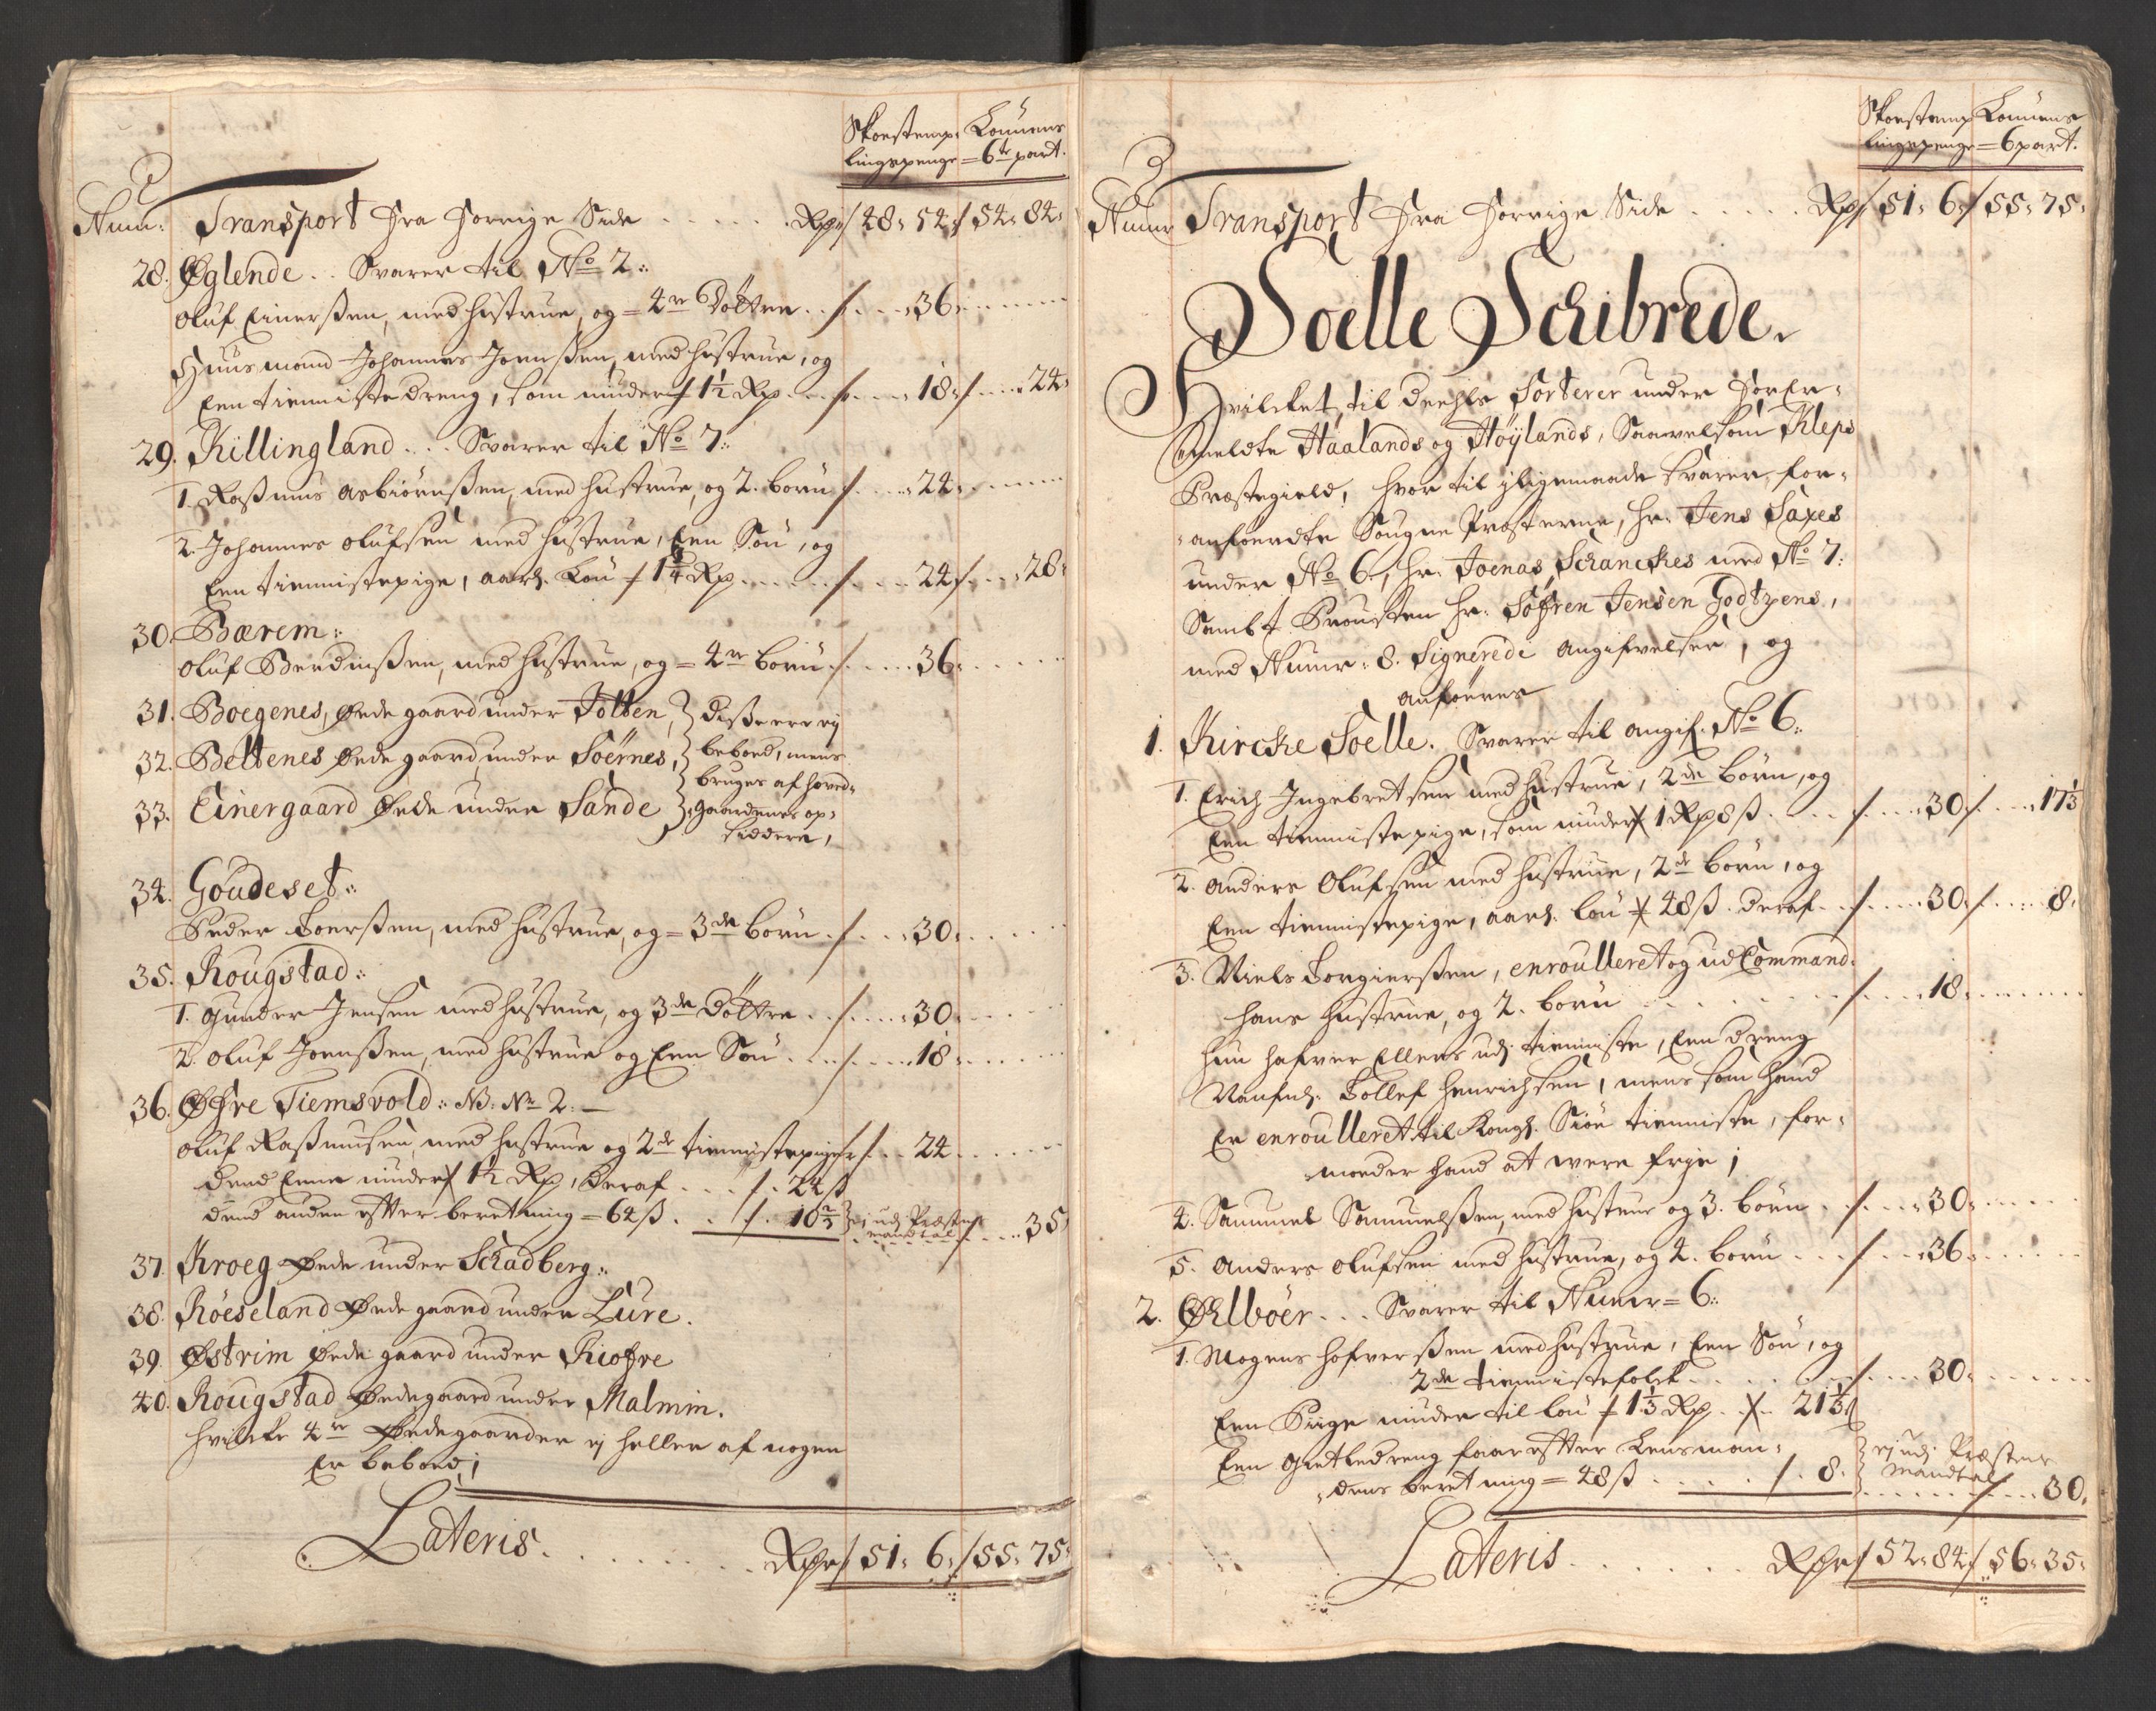 Skoestemp- Lønnens
lingspenge = 6te part.
Num: Transport fra forrige Side . . . . . Rdr / 48: 54: / 54: 84:
28. Øglende . . Svarer til No 2:
Oluf Einerßen, med hustrue, og = 4re Døttre . . / . . . 36: . . . .
Huusmand Johannes Joenßen, med hustrue, og
Een tienniste dreng, som niuder / 1 1/2 Rdr . . / . . . 18: / . . . 24:
29. Killingland . . . Svarer til No 7:
1. Rasmus Asbiørnßen, med hustrue, og 2. børn / . . . 24: . . . .
2. Johannes Olufsen med hustrue, Een Søn, og
Een tiennistepige, aarl. Løn / 1 3/4 Rdr . . . . / . . . 24 / . . . 28:
30. Bærem:
Oluf Berdinßen, med hustrue, og = 4re børn / . . . 36: . . . .
31. Boegenes, Øede gaard under Jolten,
32. Beltenes Øede gaard, under Soernes,
33. Einergaard Øede under Sande
diße err ej
beboed, mens
bruges af hoved-
gaardenes op-
siddere,
34. Goudeset:
Peder Toerßen, med hustrue, og = 3de børn . / . . . 30: . . . .
35. Rougstad:
1. Gunder Jensen med hustrue, og 3de Døttre . . / . . . 30: . . . .
2. Oluf Joenßen, med hustrue og Een Søn . . . / . . . 18: . . . .
36. Øfre Tiemsvold: NB: No 2: —
Oluf Rasmusen, med hustrue og 2de tiennistepiger / . . 24 . . . .
dend Eene niuder / 1 1/2 Rdr, deraf . . . / . 24 ß
dend anden efter beretning = 64 ß . . / . 10 2/3 ej udj Præstens mandtal / . . . 35
37. Kroeg Øede under Schadberg:
38. Røeseland Øede gaard under Lure.
39. Østrim Øede gaard under Riofre
40. Rougstad Øedegaard under Malmin.
hvilcke 4re Øedegaarder ej heller af nogen
Er beboed;
Lateris . . . . . . . . Rdr / 51: 6: / 55: 75:
Skoestemp Lønnens
lingspenge = 6 part.
Numr Transport fra forrige Side . . . . . Rdr / 51: 6: / 55: 75:
Soelle Schibrede.
Hvilcket til deehls Sorterer under forer-
meldte Haalands og Høylands, Saavelsom Kleps
Præstegield, hvor til iligemaade svarer, for-
anførdte Sougne Præsterne, hr. Jens Saxes
under No 6, hr. Joenas Schanckes med No 7:
Sambt Prousten hr. Søfren Jensen Godtzens,
med Numr: 8. Signerede angifvelser, og
anføeres
1. Kircke Soelle. Svarer til angif. No 6:
1. Erich Ingebretsen med hustrue, 2de børn, og
Een tiennistepige, som niuder / 1 Rd 8 ß . . . . / . . . 30 / . . . 17 1/3
2. Anders Olufsen med hustrue, 2de børn, og
Een tiennistepige, aarl. løn / 48 ß. deraf . . / . . . 30 / . . . 8:
3. Niels Torgierßen, enroulleret og udCommand:
hans hustrue, og 2. børn . . . . . . . / . . . 18: . . . .
hun hafver Ellers udj tienniste, Een dreng
Nafnl. Tollef Henrichsen, mens som hand
Er enroulleret til Kongl. Siøe tienniste, for-
moeder hand at were frje;
4. Sammel Sammelßen, med hustrue og 3. børn . . / . . . 30: . . . .
5. Anders Olufsen med hustrue, og 4. børn . . . / . . . 36: . . . .
2. Ølbøer . . . Svarer til Numr = 6:
1. Mogens Hofverßen med hustrue, Een Søn, og
2de tiennistefolck . . . . . . / . . . 30: . . . .
Een Piige niuder til løn / 1 1/3 Rdr . / . 21 1/3 ß
Een Gietledreng faar efter Lensman-
dens beretning = 48 ß . . . . . / . 8. ej udj Præstens mandtal / . . . 30.
Lateris . . . . . . Rdr / 52: 84 / 56: 35: